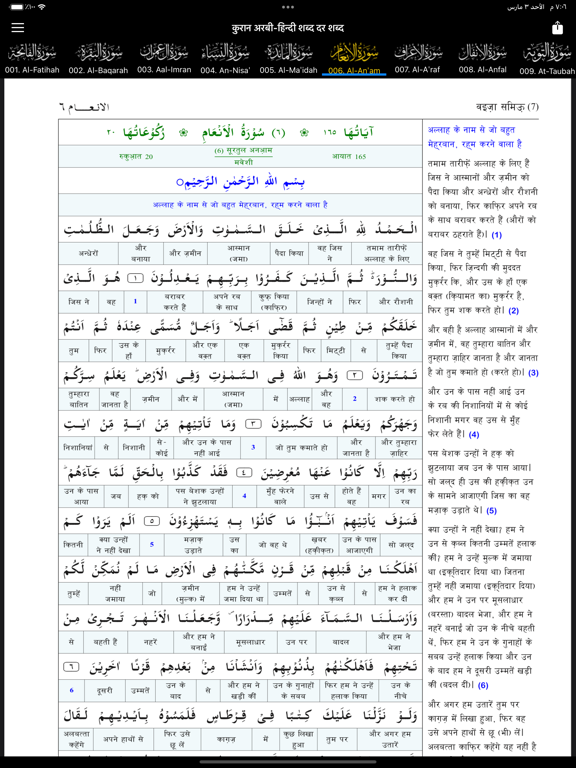 ٧:٠٦ م الأحد ٣ مارس
कुरान अरबी-हिन्दी शब्द दर शब्द
001. Al-Fatihah 002. Al-Baqarah 003. Aal-Imran 004. An-Nisa' 005. Al-Ma'idah 006. Al-An'am 007. Al-A'raf 008. Al-Anfal 009. At-Taubah
الانعـــام ٦
वइज़ा समिऊ (7)
اٰیَاتُهَا ١٦٥ (٦) سُوْرَةُ الْاَنْعَامِ رُكُوْعَاتُهَا ٢٠
आयात 165 (6) सूरतुल अनआ़म मवेशी रुकुआ़त 20
بِسْمِ اللهِ الرَّحْمٰنِ الرَّحِيْمِ
अल्लाह के नाम से जो बहुत मेह्‌रबान, रह्‌म करने वाला है
اَلْحَمْدُ لِلّٰهِ الَّذِيْ خَلَقَ السَّمٰوٰتِ وَالْاَرْضَ وَجَعَلَ الظُّلُمٰتِ
तमाम तारीफ़ें अल्लाह के लिए वह जिस ने पैदा किया आस्मान (जमा) और ज़मीन और बनाया अन्धेरों
وَالنُّوْرَ ثُمَّ الَّذِيْنَ كَفَرُوْا بِرَبِّهِمْ يَعْدِلُوْنَ ١ هُوَ الَّذِيْ
और रौशनी फिर जिन्होंने कुफ़्र किया (काफ़िर) अपने रब के साथ बराबर करते हैं 1 वह जिस ने
خَلَقَكُمْ مِّنْ طِيْنٍ ثُمَّ قَضٰٓى اَجَلًا وَاَجَلٌ مُّسَمًّى عِنْدَهٗ ثُمَّ اَنْتُمْ
तुम्हें पैदा किया से मिट्टी फिर मुक़र्रर किया एक वक़्त और एक वक़्त मुक़र्रर उस के हाँ फिर तुम
تَمْتَرُوْنَ ٢ وَهُوَ اللهُ فِي السَّمٰوٰتِ وَفِي الْاَرْضِ يَعْلَمُ سِرَّكُمْ
शक करते हो 2 और वह अल्लाह में आस्मान (जमा) और में ज़मीन वह जानता है तुम्हारा बातिन
وَجَهْرَكُمْ وَيَعْلَمُ مَا تَكْسِبُوْنَ ٣ وَمَا تَاْتِيْهِمْ مِّنْ اٰيَةٍ مِّنْ اٰيٰتِ
और तुम्हारा ज़ाहिर और जानता है जो तुम कमाते हो 3 और उन के पास नहीं आई से-कोई निशानी से निशानियां
رَبِّهِمْ اِلَّا كَانُوْا عَنْهَا مُعْرِضِيْنَ ٤ فَقَدْ كَذَّبُوْا بِالْحَقِّ لَمَّا جَآءَهُمْ
उन का रब मगर होते हैं वह उस से मुँह फेरने वाले 4 पस बेशक उन्हों ने झुटलाया हक़ को जब उन के पास आया
فَسَوْفَ يَاْتِيْهِمْ اَنْۢبٰٓؤُا مَا كَانُوْا بِهٖ يَسْتَهْزِءُوْنَ ٥ اَلَمْ يَرَوْا كَمْ
सो जल्द उन के पास आजाएगी ख़बर (हक़ीक़त) जो वह थे उस का मज़ाक़ उड़ाते 5 क्या उन्हों ने नहीं देखा कितनी
اَهْلَكْنَا مِنْ قَبْلِهِمْ مِّنْ قَرْنٍ مَّكَّنّٰهُمْ فِي الْاَرْضِ مَا لَمْ نُمَكِّنْ لَّكُمْ
हम ने हलाक कर दी से उन से क़ब्ल से उम्मतें हम ने उन्हें जमा दिया था ज़मीन (मुल्क) में जो नहीं जमाया तुम्हें
وَاَرْسَلْنَا السَّمَآءَ عَلَيْهِمْ مِّدْرَارًا وَّجَعَلْنَا الْاَنْهٰرَ تَجْرِيْ مِنْ
और हम ने भेजा बादल उन पर मूसलाधार और हम ने बनाईं नहरें बहती हैं से
تَحْتِهِمْ فَاَهْلَكْنٰهُمْ بِذُنُوْبِهِمْ وَاَنْشَاْنَا مِنْۢ بَعْدِهِمْ قَرْنًا اٰخَرِيْنَ ٦
उन के नीचे फिर हम ने उन्हें हलाक किया उन के गुनाहों के सबब और हम ने खड़ी कीं से उन के बाद उम्मतें दूसरी 6
وَلَوْ نَزَّلْنَا عَلَيْكَ كِتٰبًا فِيْ قِرْطَاسٍ فَلَمَسُوْهُ بِاَيْدِيْهِمْ لَقَالَ
और अगर हम उतारें तुम पर कुछ लिखा हुआ में काग़ज़ फिर उसे छू लें अपने हाथों से अलबत्ता कहेंगे
अल्लाह के नाम से जो बहुत
मेह्‌रबान, रह्‌म करने वाला है
तमाम तारीफ़ें अल्लाह के लिए हैं
जिस ने आस्मानों और ज़मीन को
पैदा किया और अन्धेरों और रौशनी
को बनाया, फिर काफ़िर अपने रब
के साथ बराबर करते हैं (औरों को
बराबर ठहराते हैं)। (1)
वह जिस ने तुम्हें मिट्टी से पैदा
किया, फिर ज़िन्दगी की मुद्दत
मुक़र्रर कि, और उस के हाँ एक
वक़्त (क़ियामत का) मुक़र्रर है,
फिर तुम शक करते हो। (2)
और वही है अल्लाह आस्मानों में और
ज़मीन में, वह तुम्हारा बातिन और
तुम्हारा ज़ाहिर जानता है और जानता
है जो तुम कमाते हो (करते हो)। (3)
और उन के पास नहीं आई उन
के रब की निशानियों में से कोई
निशानी मगर वह उस से मुँह
फेर लेते हैं। (4)
पस बेशक उन्हों ने हक़ को
झुटलाया जब उन के पास आया।
सो जल्द ही उस की हक़ीक़त उन
के सामने आजाएगी जिस का वह
मज़ाक़ उड़ाते थे। (5)
क्या उन्हों ने नहीं देखा? हम ने
उन से क़ब्ल कितनी उम्मतें हलाक
कीं? हम ने उन्हें मुल्क में जमाया
था (इक़तिदार दिया था) जितना
तुम्हें नहीं जमाया (इक़तिदार दिया)
और हम ने उन पर मूसलाधार
(बरस्ता) बादल भेजा, और हम ने
नहरें बनाईं जो उन के नीचे बहती
थें, फिर हम ने उन के गुनाहों के
सबब उन्हें हलाक किया और उन
के बाद हम ने दूसरी उम्मतें खड़ी
कीं (बदल दीं)। (6)
और अगर हम उतारें तुम पर
काग़ज़ में लिखा हुआ, फिर वह
उसे अपने हाथों से छू (भी) लें।
अलबत्ता काफ़िर कहेंगे यह नहीं है